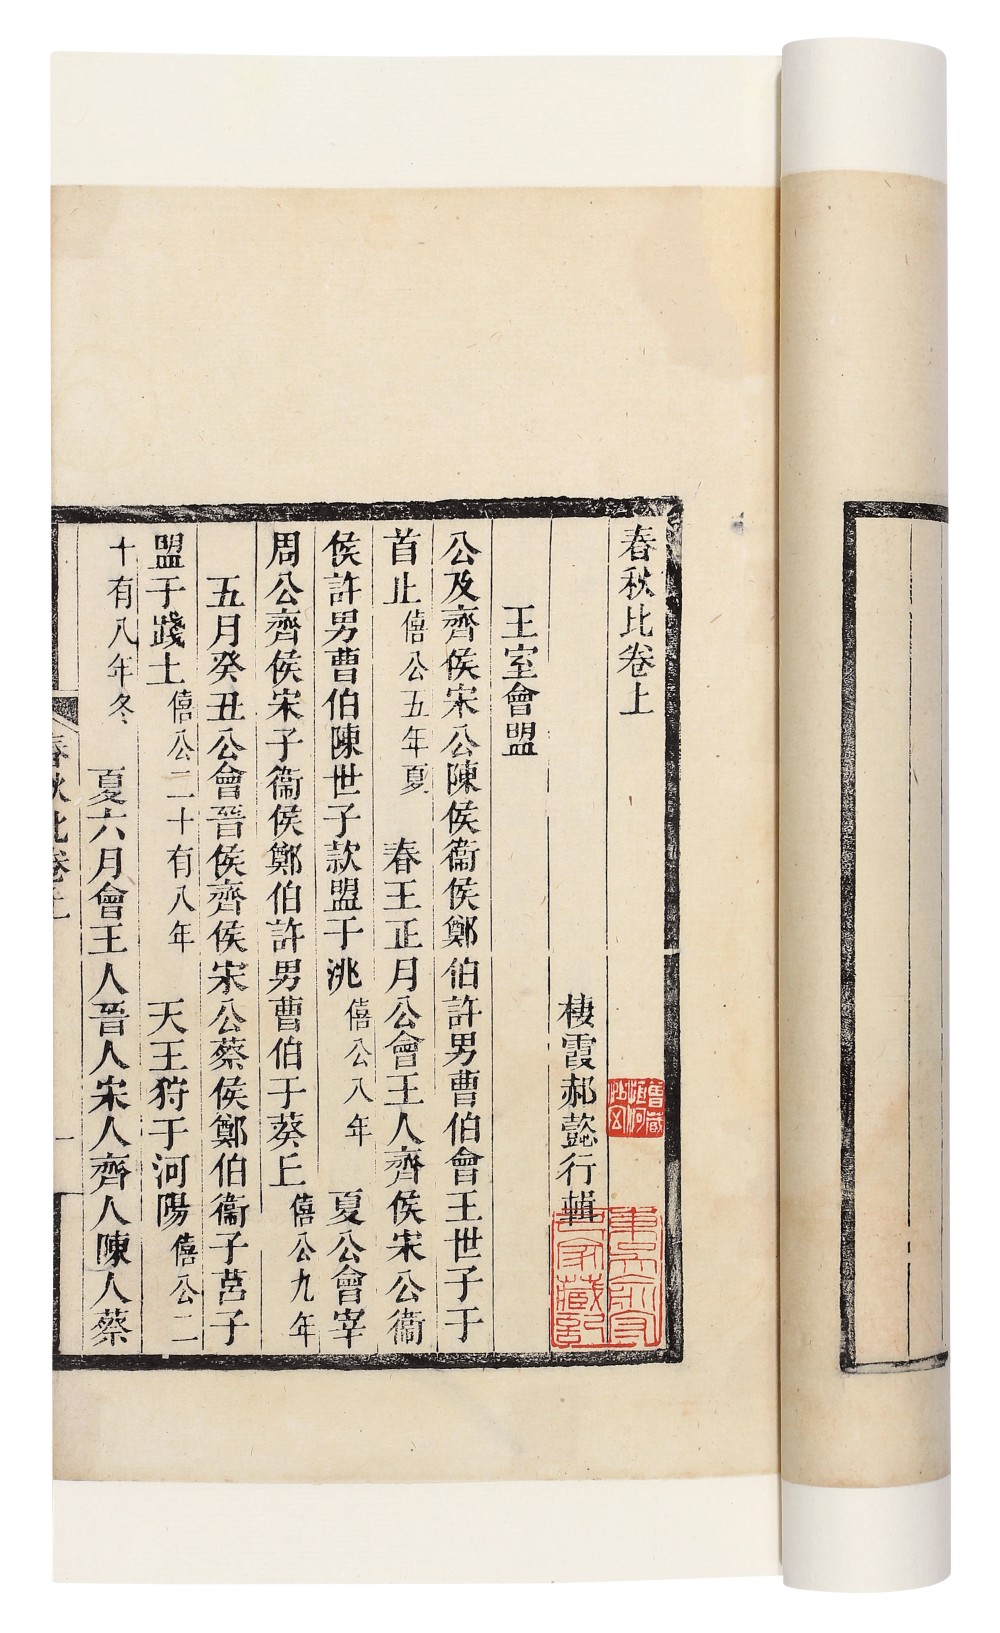 春秋比卷上
棲霞郝懿行輯
王室會盟
公及齊侯宋公陳侯衞侯鄭伯許男曹伯會王世子于
首止僖公五年夏　春王正月公會王人齊侯宋公衞
侯許男曹伯陳世子款盟于洮僖公八年　夏公會宰
周公齊侯宋子衞侯鄭伯許男曹伯于葵丘僖公九年
五月癸丑公會晉侯齊侯宋公蔡侯鄭伯衞子莒子
盟于踐土僖公二十有八年　天王狩于河陽僖公二
十有八年冬　夏六月會王人晉人宋人齊人陳人蔡
春秋比卷上　一